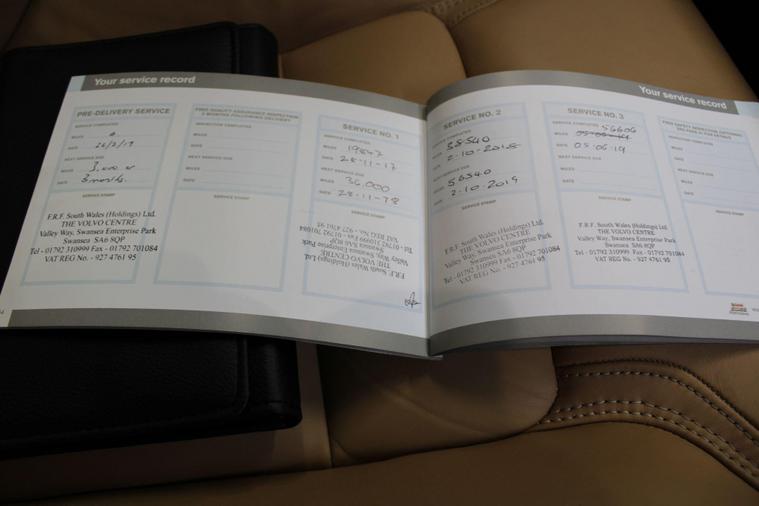 Your service record
PRE-DELIVERY SERVICE
SERVICE COMPLETED
MILES 0
DATE
NEXT SERVICE DUE
MILES
DATE 3 months
SERVICE STAMP
F.R.F. South Wales (Holdings) Ltd.
THE VOLVO CENTRE
Valley Way, Swansea Enterprise Park
Swansea SA6 8QP
Tel - 01792 310999 Fax - 01792 701084
VAT REG No. - 927 4761 95
FREE QUALITY ASSURANCE INSPECTION
3 MONTHS FOLLOWING DELIVERY
INSPECTION COMPLETED
MILES
DATE
NEXT SERVICE DUE
MILES
DATE
SERVICE STAMP
SERVICE NO. 1
SERVICE COMPLETED
MILES
DATE 28-11-17
NEXT SERVICE DUE
MILES 36,000
DATE 28-11-18
SERVICE STAMP
F.R.F. South Wales (Holdings) Ltd.
THE VOLVO CENTRE
Valley Way, Swansea Enterprise Park
Swansea SA6 8QP
Tel - 01792 310999 Fax - 01792 701084
VAT REG No. - 927 4761 95
Your service record
SERVICE NO. 2
SERVICE COMPLETED
MILES 38540
DATE 2-10-2018
NEXT SERVICE DUE
MILES 56540
DATE 2-10-2019
SERVICE STAMP
F.R.F. South Wales (Holdings) Ltd.
THE VOLVO CENTRE
Valley Way, Swansea Enterprise Park
Swansea SA6 8QP
Tel - 01792 310999 Fax - 01792 701084
VAT REG No. - 927 4761 95
SERVICE NO. 3
SERVICE COMPLETED 56606
MILES
DATE 05-06-19
NEXT SERVICE DUE
MILES
DATE
SERVICE STAMP
F.R.F. South Wales (Holdings) Ltd.
THE VOLVO CENTRE
Valley Way, Swansea Enterprise Park
Swansea SA6 8QP
Tel - 01792 310999 Fax - 01792 701084
VAT REG No. - 927 4761 95
INSPECTION COMPLETED
MILES
DATE
NEXT SERVICE DUE
MILES
DATE
SERVICE STAMP